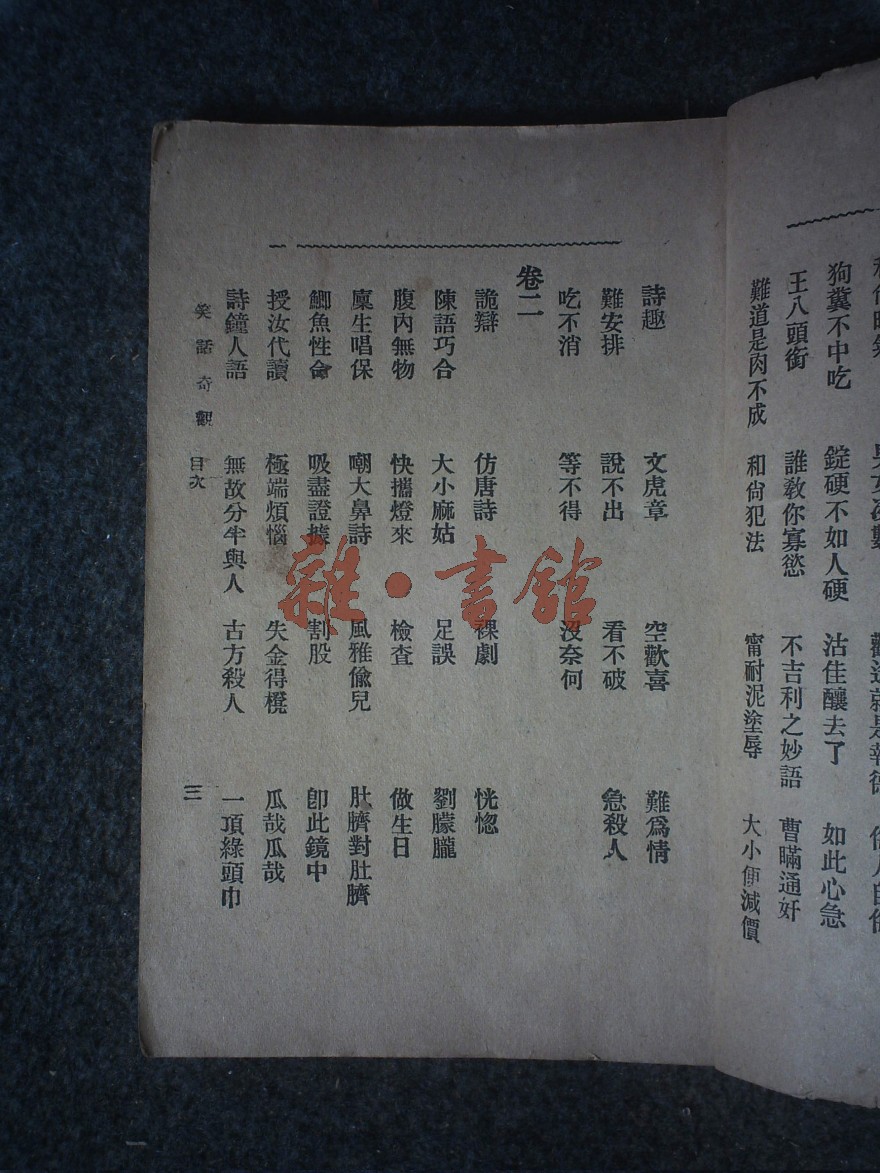 狗糞不中吃 錠硬不如人硬 沽佳釀去了 如此心急
王八頭銜 誰敎你寡慾 不吉利之妙語 曹瞞通奸
難道是肉不成 和尙犯法 甯耐泥塗辱 大小便減價
詩趣 文虎章 空歡喜 難爲情
難安排 說不出 看不破 急殺人
吃不消 等不得 沒奈何
卷二
詭辯 仿唐詩 裸劇 恍惚
陳語巧合 大小麻姑 足誤 劉朦朧
腹內無物 快攜燈來 檢查 做生日
廩生唱保 嘲大鼻詩 風雅偸兒 肚臍對肚臍
鯽魚性命 吸盡證據 割股 卽此鏡中
授汝代讀 極端煩惱 失金得櫈 瓜哉瓜哉
詩鐘人語 無故分半與人 古方殺人 一頂綠頭巾
笑話奇觀 目次 三
雜·書館